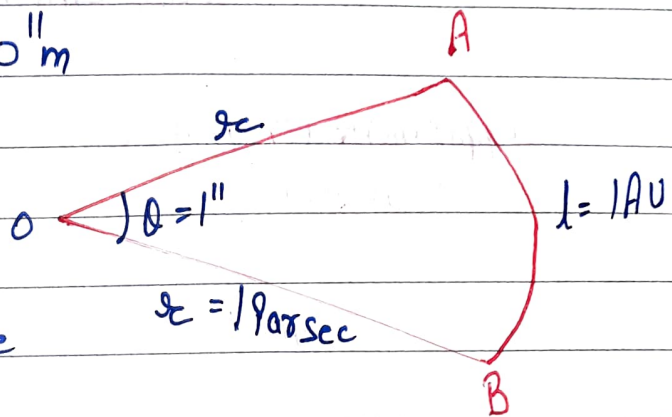 0"m
A
r
O
θ = 1"
l = 1AU
r = 1Parsec
B